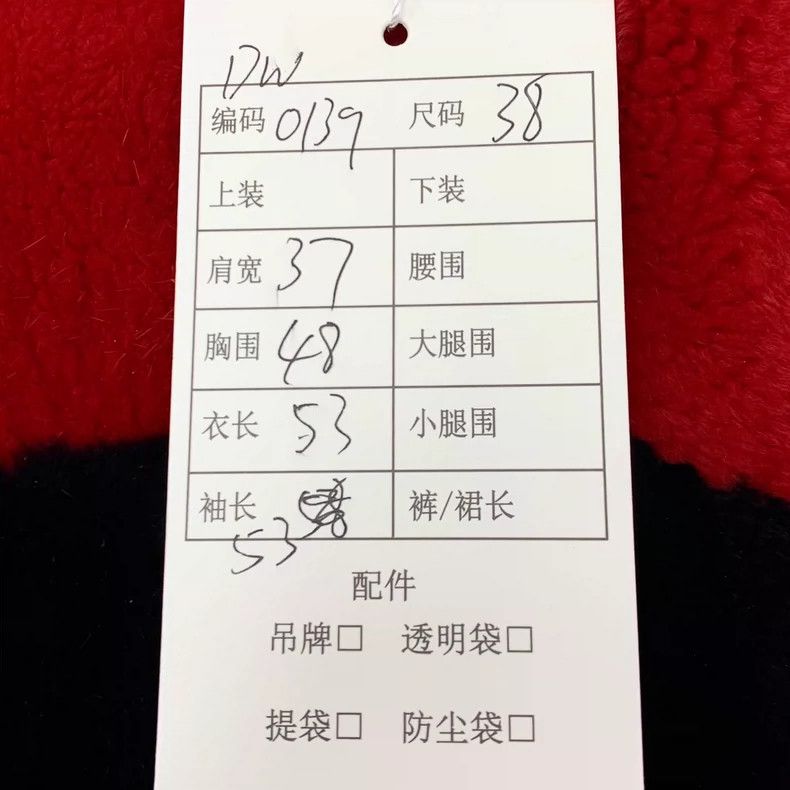 DW
编码 0139 尺码 38
上装 下装
肩宽 37 腰围
胸围 48 大腿围
衣长 53 小腿围
袖长 裤/裙长
53
配件
吊牌□ 透明袋□
提袋□ 防尘袋□